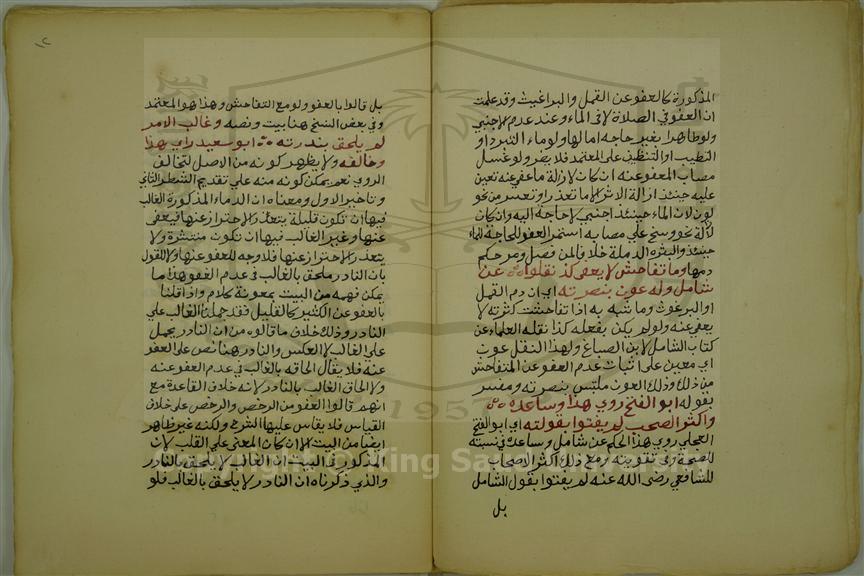 المذكورة كالعفو عن القمل والبراغيث وقد علمت
ان العفو في الصلاة لا في الماء وعند عدم الاجنبي
ولو طاهرا بغير حاجه اما لها ولو ماء التبرد او
التطيب او التنظيف على المعتمد فلا يضر ولو غسل
مصاب المعفو عنه ان كان لازالة ما عفي عنه تعين
عليه حينئذ ازالة الاثر الا ما تعذر او تعسر من نحو
لون لان الماء حينئذ اجنبي لا حاجة اليه وان كان
لازالة نحو وسخ على مصابه استمر العفو للحاجة للماء
حينئذ والبثره الدملة خلافا لمن فصل ومر حكم
دمها وما تفاحش لا يعفو كذ نقلوا عن
شامل وله عون بنصرته اي ان دم القمل
او البرغوث وما شبه به اذا تفاحشت كثرته لا
يعفي عنه ولو لم يكن بفعله كذا نقله العلماء عن
كتاب الشامل لابن الصباغ ولهذا النقل عون
اي معين على اثبات عدم العفو عن المتفاحش
من ذلك وذلك العون ملتبس بنصرته ومفسر
بقوله ابو الفتح روي هذا وساعده
واكثر الصحب لم يفتوا بقولته اي ابو الفتح
العجلي روي هذا الحكم عن شامل وساعده في نسبته
للصحة وفي تقويته ومع ذلك اكثر الاصحاب
للشافعي رضى الله عنه لم يفتوا بقول الشامل
بل
١٢
بل قالوا بالعفو ولو مع التفاحش وهذا هو المعتمد
وفي بعض النسخ هنا بيت ونصه وغالب الامر
لم يلحق بندرته ابو سعيد راي هذا
وخالفه ولا يظهر كونه من الاصل لتخالف
الروي نعم يمكن كونه منه علي تقديم الشطر الثاني
وتاخير الاول ومعناه ان الدماء المذكورة الغالب
فيها ان تكون قليلة يتعذر الاحتراز عنها فيعفى
عنها وغير الغالب فيها ان تكون منتشرة ولا
يتعذر الاحتراز عنها فلا وجه للعفو عنها ولا للقول
بان النادر ملحق بالغالب في عدم العفو هذا ما
يمكن فهمه من البيت بمعونة كلام واذا قلنا
بالعفو عن الكثير كالقليل فقد حملنا الغالب علي
النادر وذلك خلاف ما قالوه من ان النادر يحمل
علي الغالب لا العكس والنادر هنا نص على العفو
عنه فلا يقال الحاقه بالغالب في عدم العفو عنه
ولا الحاق الغالب بالنادر لانه خلاف القاعدة مع
انهم قالوا العفو من الرخص والرخص على خلاف
القياس فلا يقاس عليها الشرح ولكنه غير ظاهر
ايضا من البيت الا ان كان المعنى علي القلب لان
المذكور في البيت ان الغالب لا يلحق بالنادر
والذي ذكرناه ان النادر لا يلحق بالغالب فلو
Copyright © King Saud University
1957